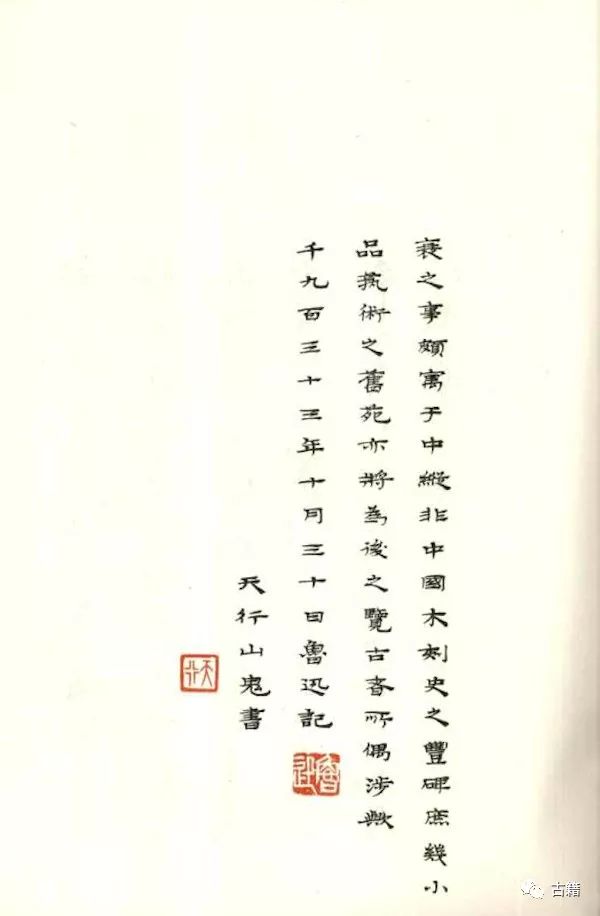 衰之事頗寓于中縱非中國木刻史之豐碑庶幾小
品蓺術之舊苑亦將為後之覽古者所偶涉歟
千九百三十三年十月三十日魯迅記
魯迅
天行山鬼書
天行
古籍